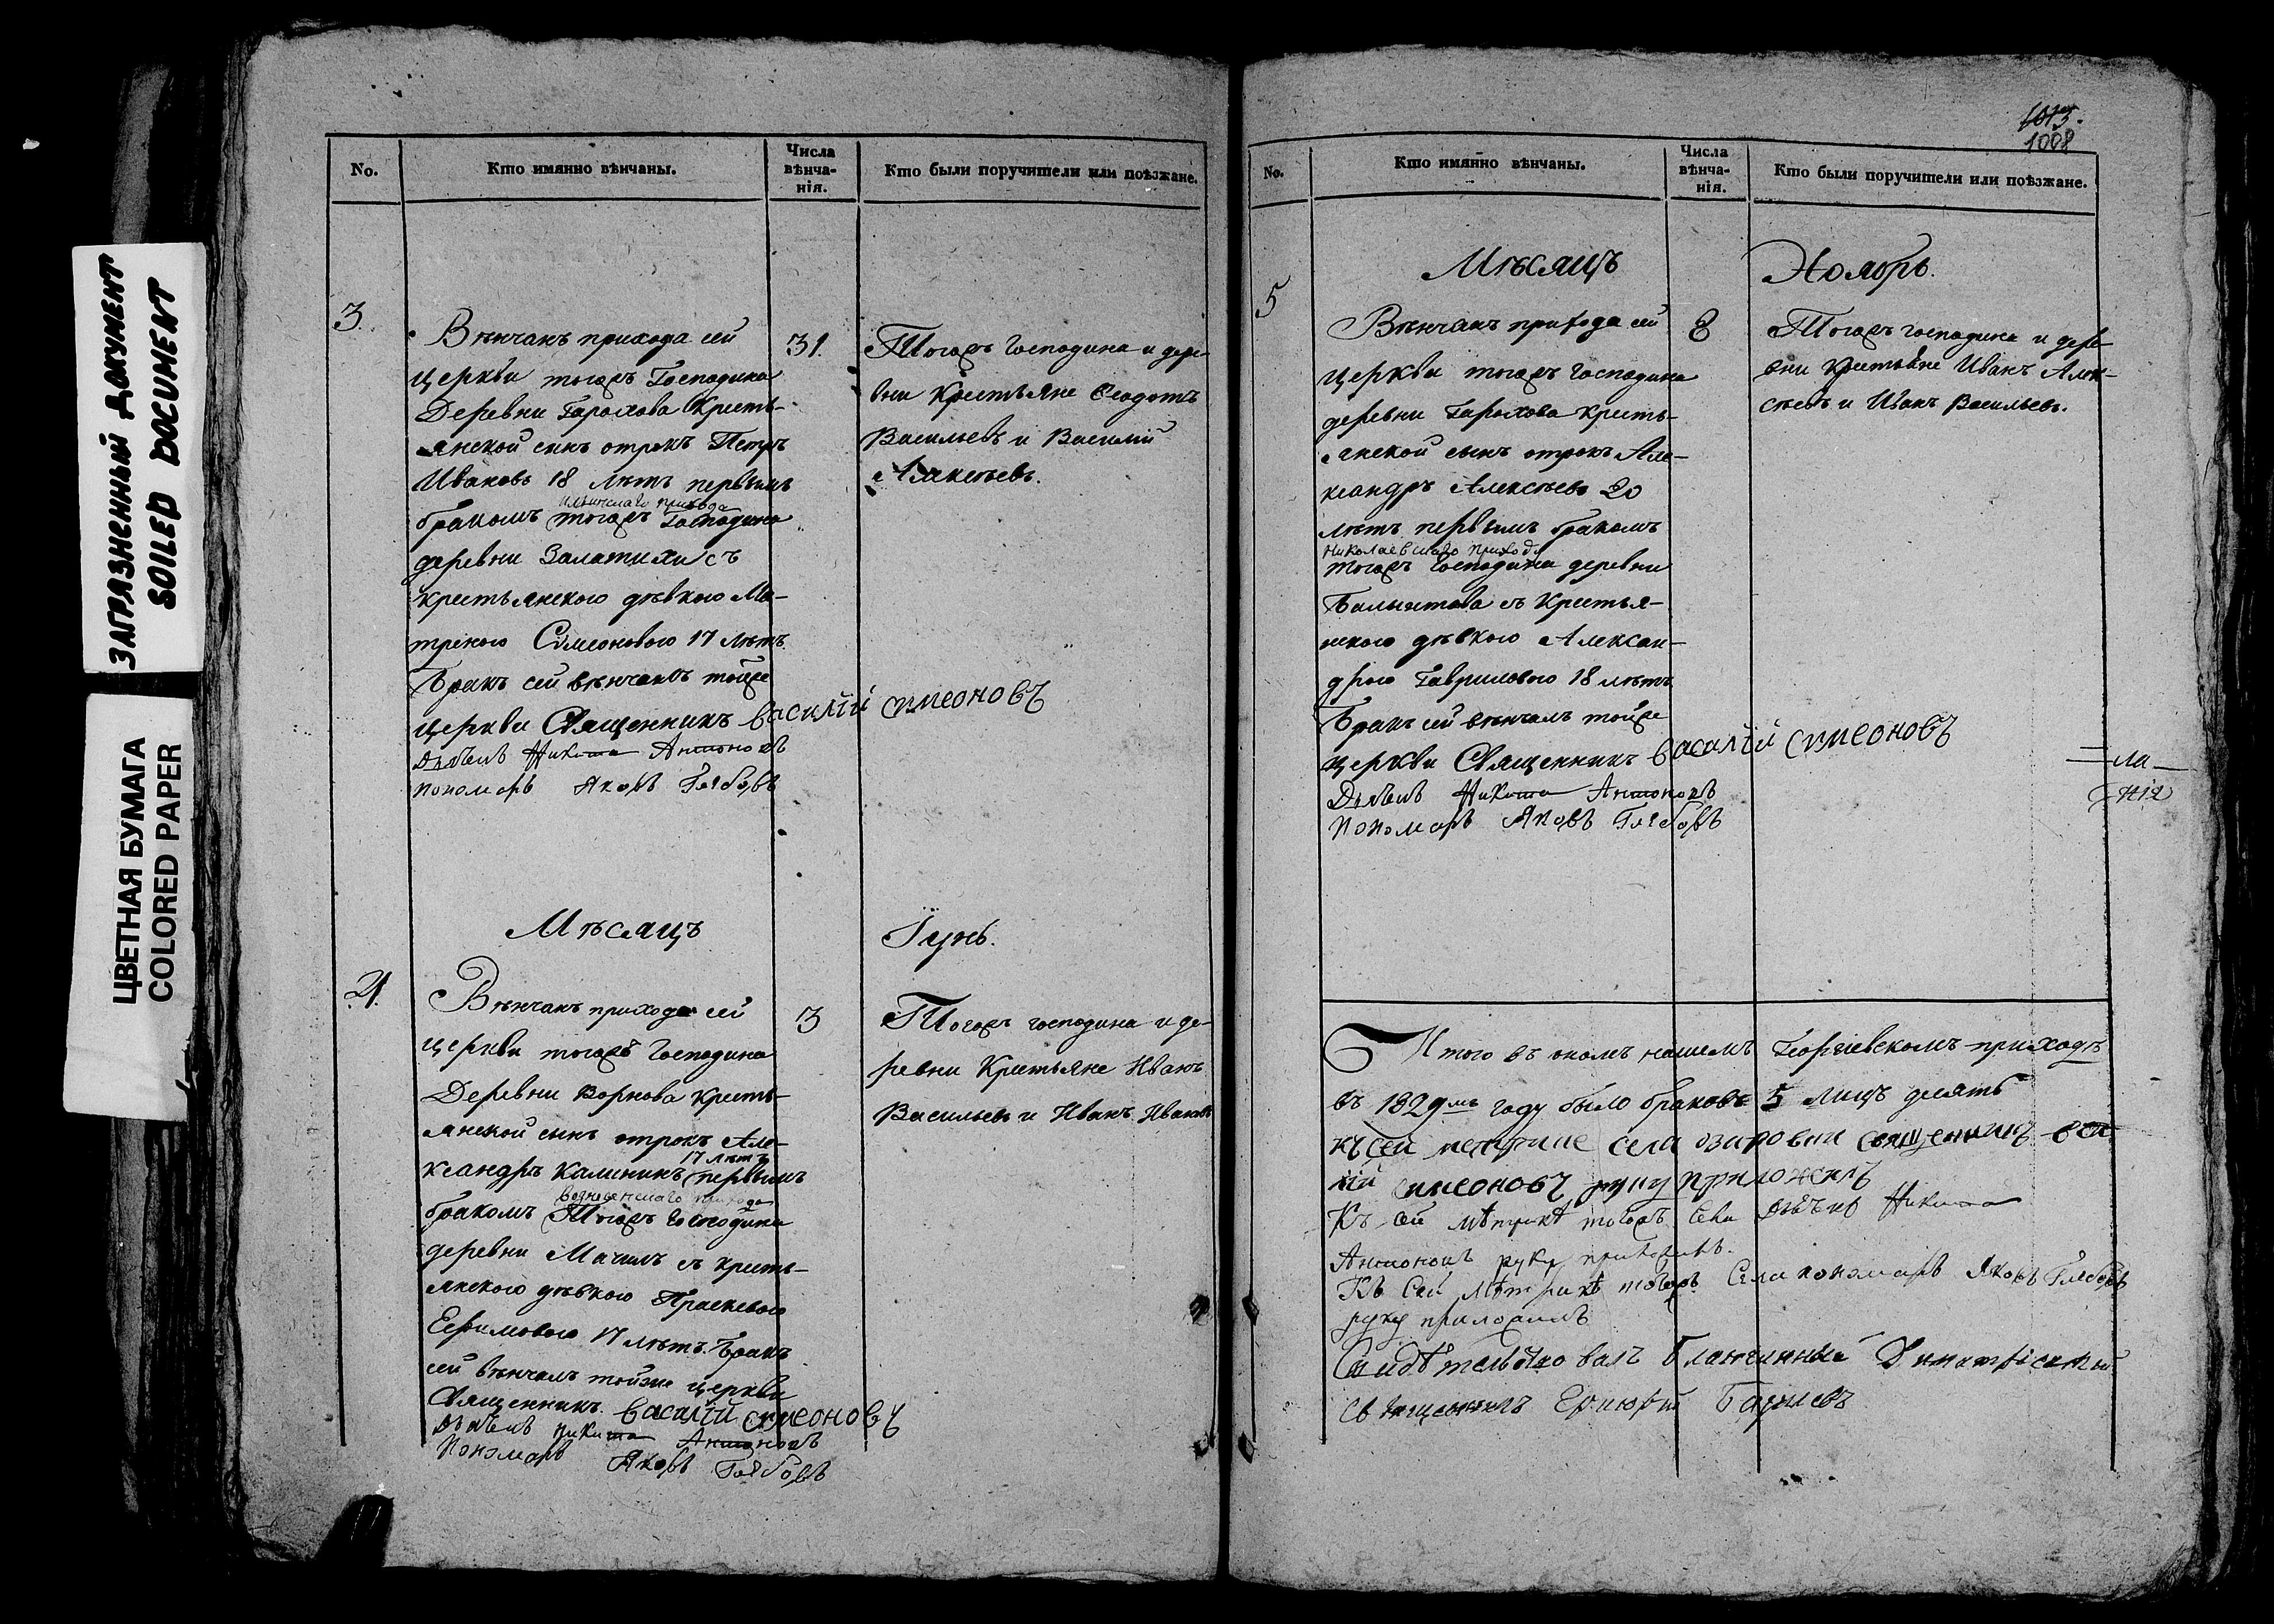 ЗАГРЯЗНЕННЫЙ ДОКУМЕНТ
SOILED DOCUMENT
ЦВЕТНАЯ БУМАГА
COLORED PAPER
No.
Кто имянно вѣнчаны.
Числа вѣнча-нія.
Кто были поручители или поѣзжане.
3.
Вѣнчанъ прихода сей
церкви тогожъ Господина
Деревни Гарохова Кресть-
янской сынъ отрокъ Петръ
Ивановъ 18 лѣтъ первымъ
Ильинскаго прихода
бракомъ тогожъ Господина
деревни Залатихи съ
крестьянскою дѣвкою Ма-
треною Сѵмеоновою 17 лѣтъ.
Бракъ сей вѣнчалъ тойже
церкви Священникъ Василій Симеоновъ
Дьячекъ Никита Антоновъ
Пономарь Яковъ Глебовъ
31.
Тогожъ Господина и дере-
вни Крестьяне Ѳеодотъ
Васильевъ и Василій
Алексѣевъ.
Мѣсяцъ Іунь.
4.
Вѣнчанъ прихода сей
церкви тогожъ Господина
Деревни Ворнова Кресть-
янской сынъ отрокъ Але-
17 лѣтъ
ксандръ Калининъ первымъ
Вознесенскаго прихода
бракомъ Тогожъ Господина
деревни Мачилъ съ кресть-
янскою дѣвкою Праскевою
Ефимовою 17 лѣтъ. Бракъ
сей вѣнчалъ тойже церкви
Священникъ Василій Симеоновъ
Дьячекъ Никита Антоновъ
Пономарь Яковъ Глебовъ
3
Тогожъ господина и де-
ревни Крестьяне Иванъ
Васильевъ и Иванъ Ивановъ
1015.
1008
No.
Кто имянно вѣнчаны.
Числа вѣнча-нія.
Кто были поручители или поѣзжане.
Мѣсяцъ Ноябрь.
5
Вѣнчанъ прихода сей
церкви тогожъ господина
деревни Гарохова кресть-
янской сынъ отрокъ Але-
ксандръ Алексѣевъ 20
лѣтъ первымъ бракомъ
Николаевскаго прихода
тогожъ Господина деревни
съ Крестья-
нскою дѣвкою Алексан-
дрою Гавриловою 18 лѣтъ
Бракъ сей вѣнчалъ тойже
церкви Священникъ Василій Симеоновъ
Дьячекъ Никита Антоновъ
Пономарь Яковъ Глебовъ
8
Тогожъ господина и дере-
вни крестьяне Иванъ Алек-
сѣевъ и Иванъ Васильевъ.
ла
нія
Итого въ ономъ нашемъ Георгіевскомъ приходѣ
въ 1829мъ году было браковъ 5 лицъ десять
къ сей метрике села священникъ Васи-
лій Симеоновъ руку приложилъ
Къ сей метрикѣ тогожъ села дьячекъ Никита
Антоновъ руку приложилъ.
Къ Сей метрикѣ тогожъ Села пономарь Яковъ Глебовъ
руку приложилъ
Свидѣтельствовалъ Благочинный
священникъ